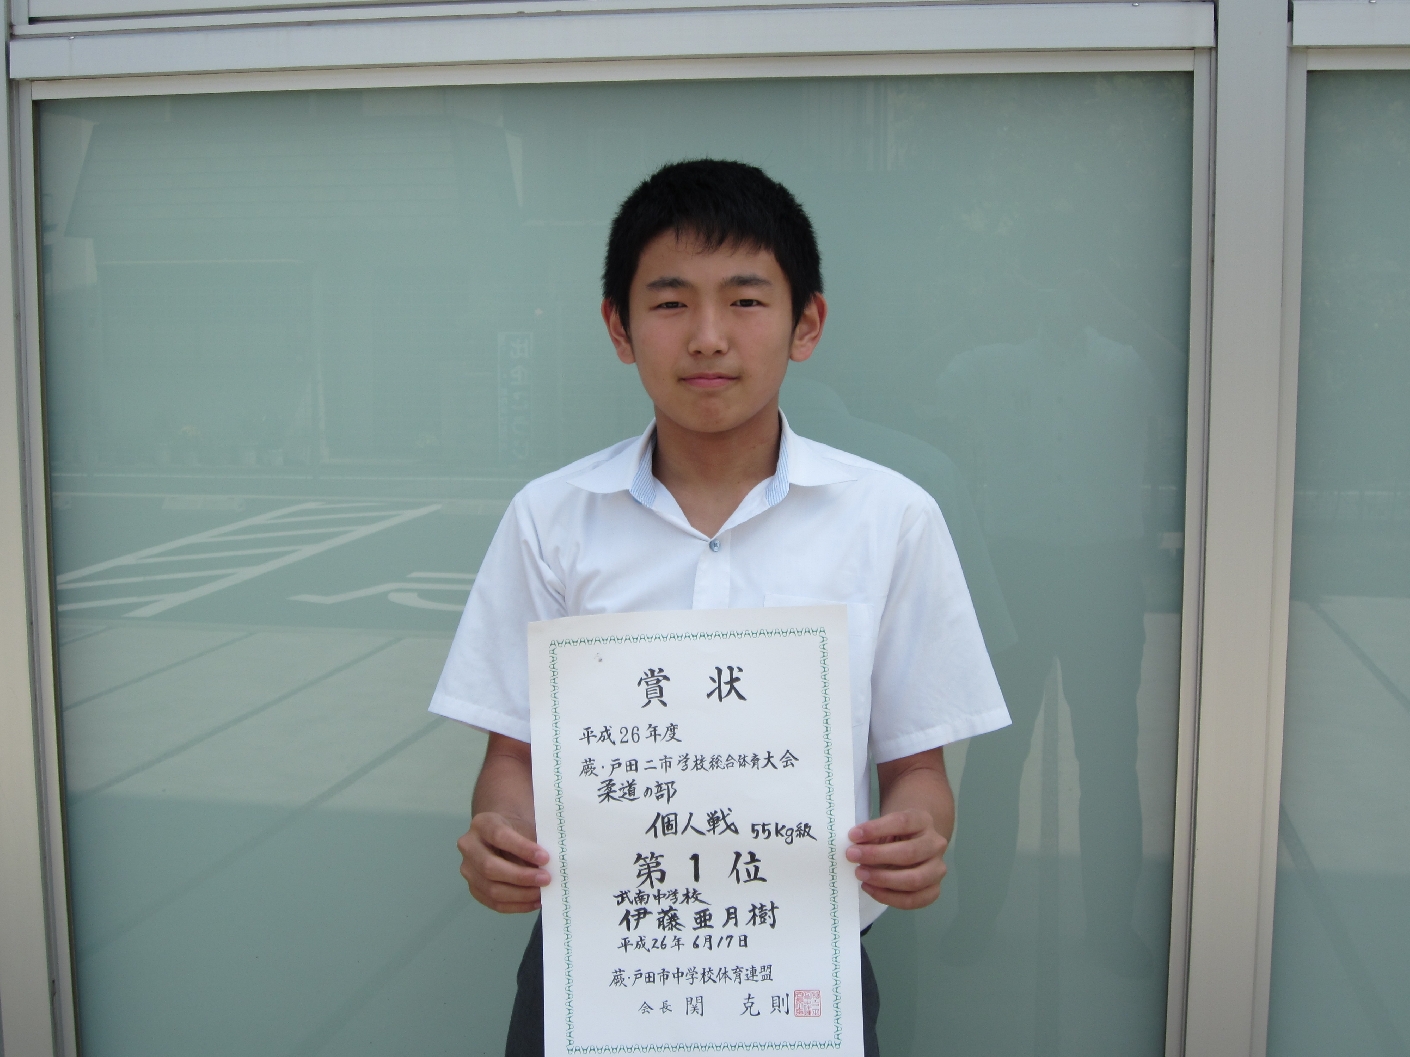 賞 状
平成26年度
蕨・戸田二市学校総合体育大会
柔道の部
個人戦 55kg級
第1位
武南中学校
伊藤亜月樹
平成26年6月17日
蕨・戸田市中学校体育連盟
会長 関 克則